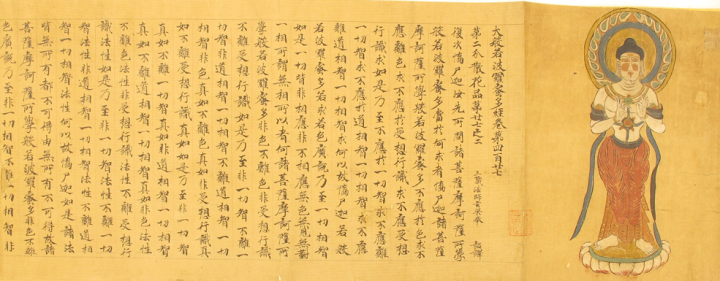 大般若波羅蜜多經卷第四百廿七
第二分散花品第廿七之二
三藏法師玄奘奉 詔譯
復次憍尸迦汝先所問諸菩薩摩訶薩所學
般若波羅蜜多當於何求者憍尸迦菩薩
摩訶薩所學般若波羅蜜多不應於色求不
應離色求不應於受想行識求不應離受想
行識求如是乃至不應於一切智求不應離
一切智求不應於道相智一切相智求不應
離道相智一切相智求何以故憍尸迦若般
若波羅蜜多若求若色廣說乃至一切相智
如是一切皆非相應非不相應無色無見無對
一相所謂無相所以者何諸菩薩摩訶薩所
學般若波羅蜜多非色不離色非受想行識
不離受想行識如是乃至非一切智不離一
切智非道相智一切相智不離道相智一切
相智非色真如不離色真如非受想行識真
如不離受想行識真如如是乃至非一切智
真如不離一切智真如非道相智一切相智
真如不離道相智一切相智真如非色法性
不離色法性非受想行識法性不離受想行
識法性如是乃至非一切智法性不離一切
智法性非道相智一切相智法性不離道相
智一切相智法性何以故憍尸迦如是諸法
皆無所有都不可得由無所有不可得故諸
菩薩摩訶薩所學般若波羅蜜多非色不離
色廣說乃至非一切相智不離一切相智非